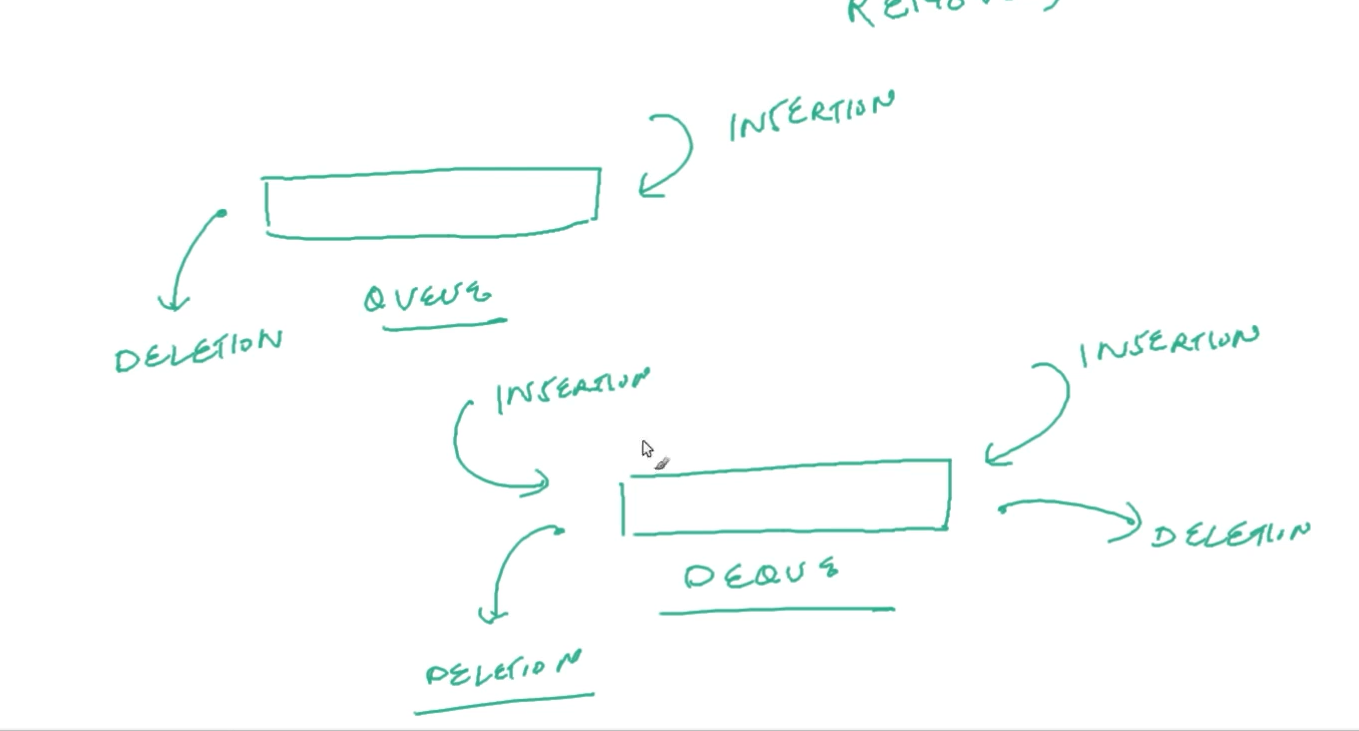 INSERTION
QUEUE
DELETION
INSERTION
INSERTION
DELETION
DEQUE
DELETION